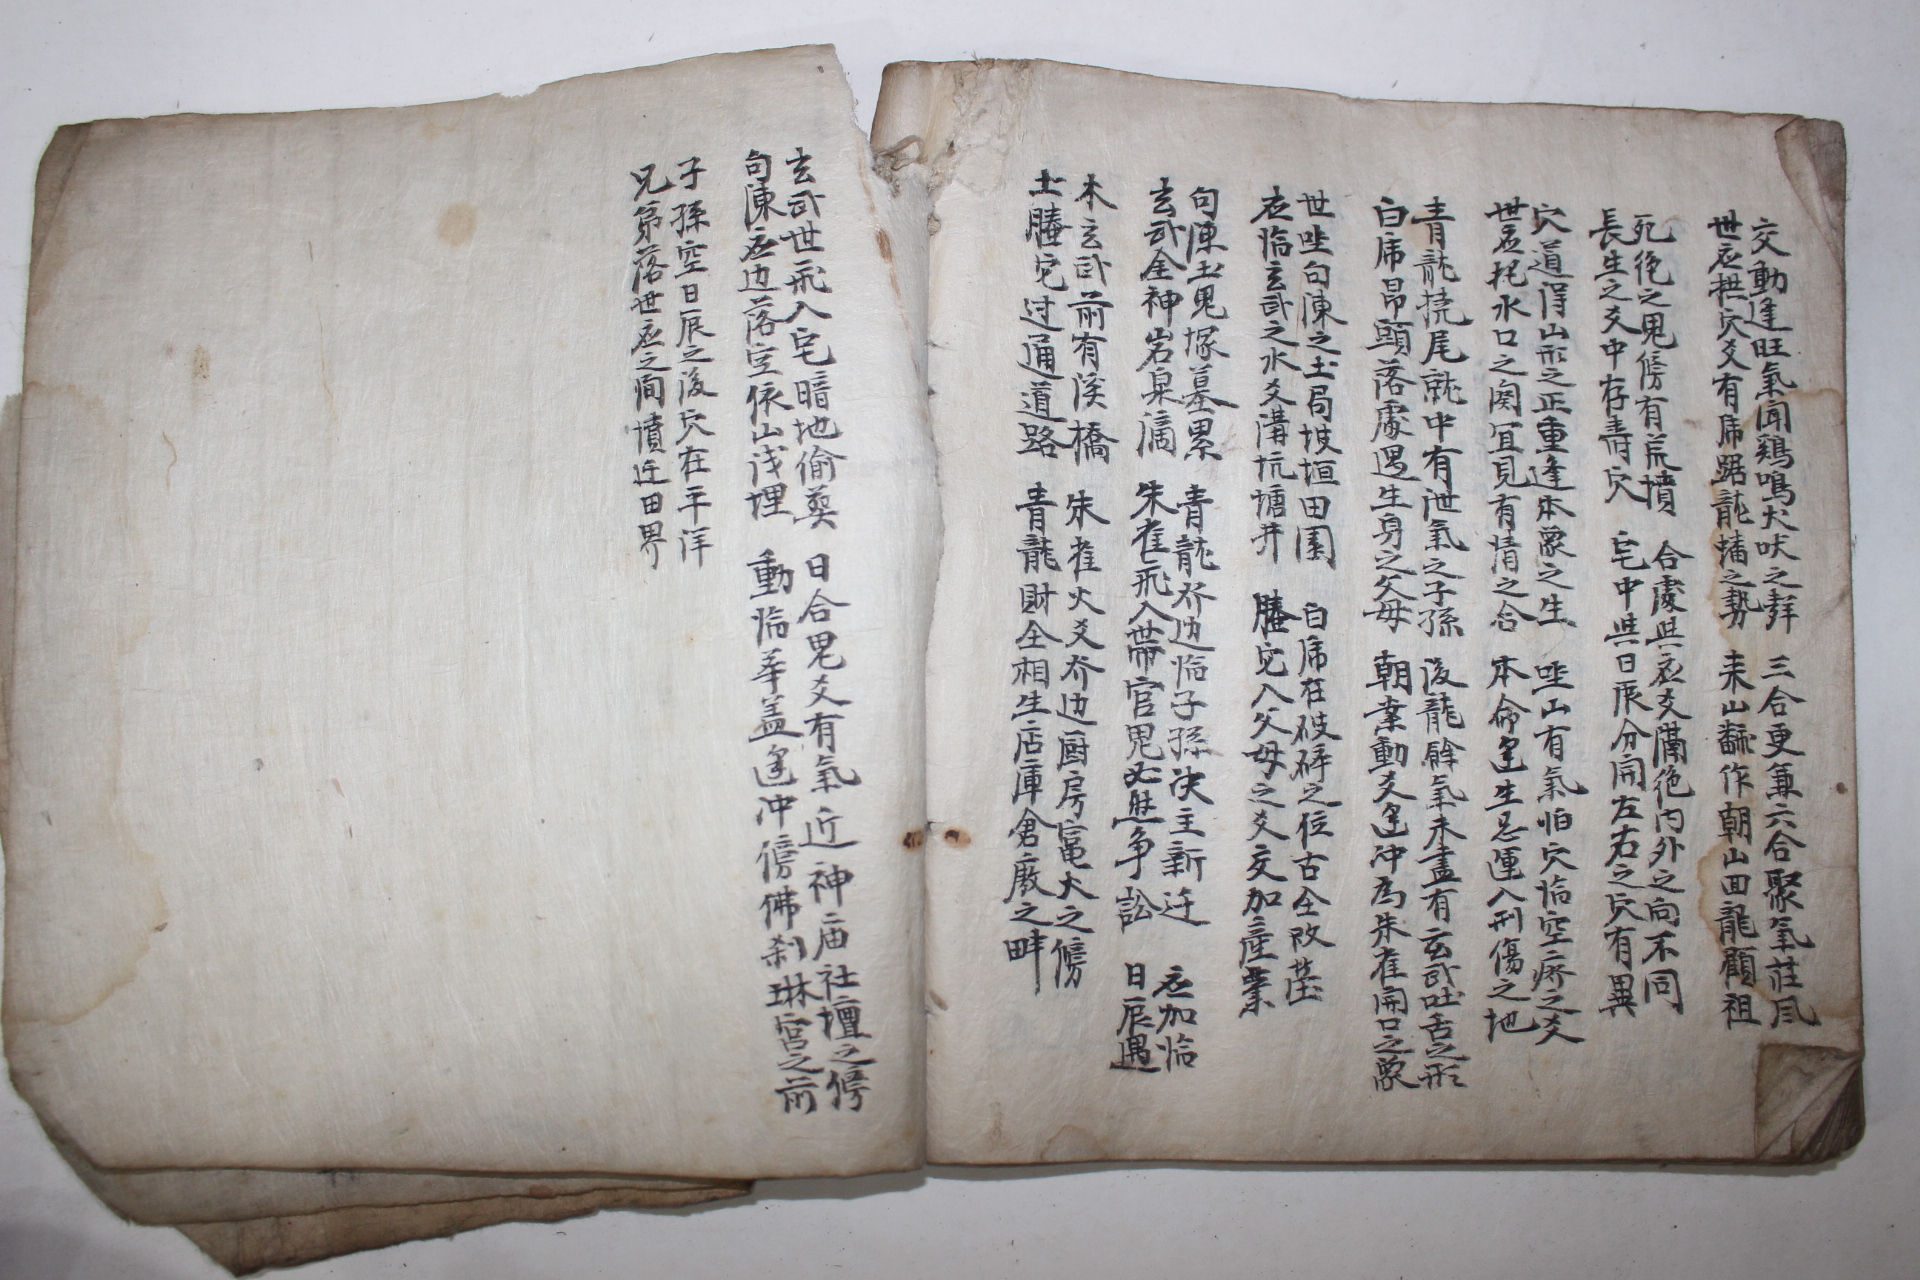 交動逢旺氣闻鷄鳴犬吠之群 三合更兼六合聚氣莊風
世应拱穴爻有虎踞龍蟠之勢 来山飜作朝山回龍顧祖
死绝之鬼傍有荒墳 合處与应爻隔绝内外之向不同
長生之爻中存壽穴 宅中与日辰分開左右之穴有異
穴道淂山形之正重逢本象之生 坐山有氣怕穴临空疹之爻
世应托水口之関冝見有情之合 本命逢生忌運入刑傷之地
青龍挠尾就中有泄氣之子孫 後龍餘氣未盡有玄武吐舌之形
白虎昂頭落處遇生身之父母 朝案動爻逢冲為朱雀開口之象
世坐句陳之土局坡垣田園 白虎在破碎之位古全改莹
应临玄武之水爻溝坑塘井 螣它入父母之爻交加産業
句陳土鬼塚墓累累 青龍爻边临子孫决主新迁 应加临
玄武金神岩泉滴 朱雀飛入世带官鬼必然争訟 日辰遇
木玄武前有溪橋 朱雀火爻爻边厨房竈大之傍
土螣它过通道路 青龍財全相生店庫倉廒之畔
玄武世飛入宅暗地偷葬 日合鬼爻有氣近神庙社壇之傍
句陳应边落空依山浅埋 動临華盖逢冲傍佛刹琳宫之前
子孫空日辰之後穴在平洋
兄第落世应之间墳迁田界